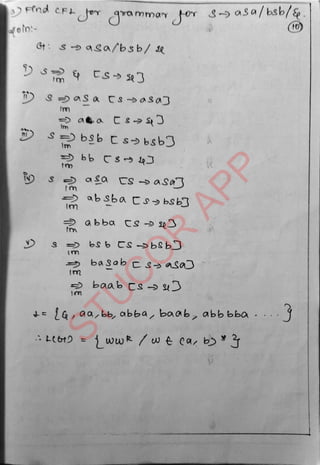 3) Find CFL for grammar for S→aSa/bSb/ε.
(10)
Soln:-
G: S→aSa/bSb/ε
i) S ⇒ ε [S→ε]
lm
ii) S ⇒ aSa [S→aSa]
lm
⇒ aa [S→ε]
lm
iii) S ⇒ bSb [S→bSb]
lm
⇒ bb [S→ε]
lm
iv) S ⇒ aSa [S→aSa]
lm
⇒ abSba [S→bSb]
lm
⇒ abba [S→ε]
lm
v) S ⇒ bSb [S→bSb]
lm
⇒ baSab [S→aSa]
lm
⇒ baab [S→ε]
lm
L = {ε, aa, bb, abba, baab, abbbba ....}
∴ L(G) = {wwᴿ / w ε (a, b)*}
STUCOR APP